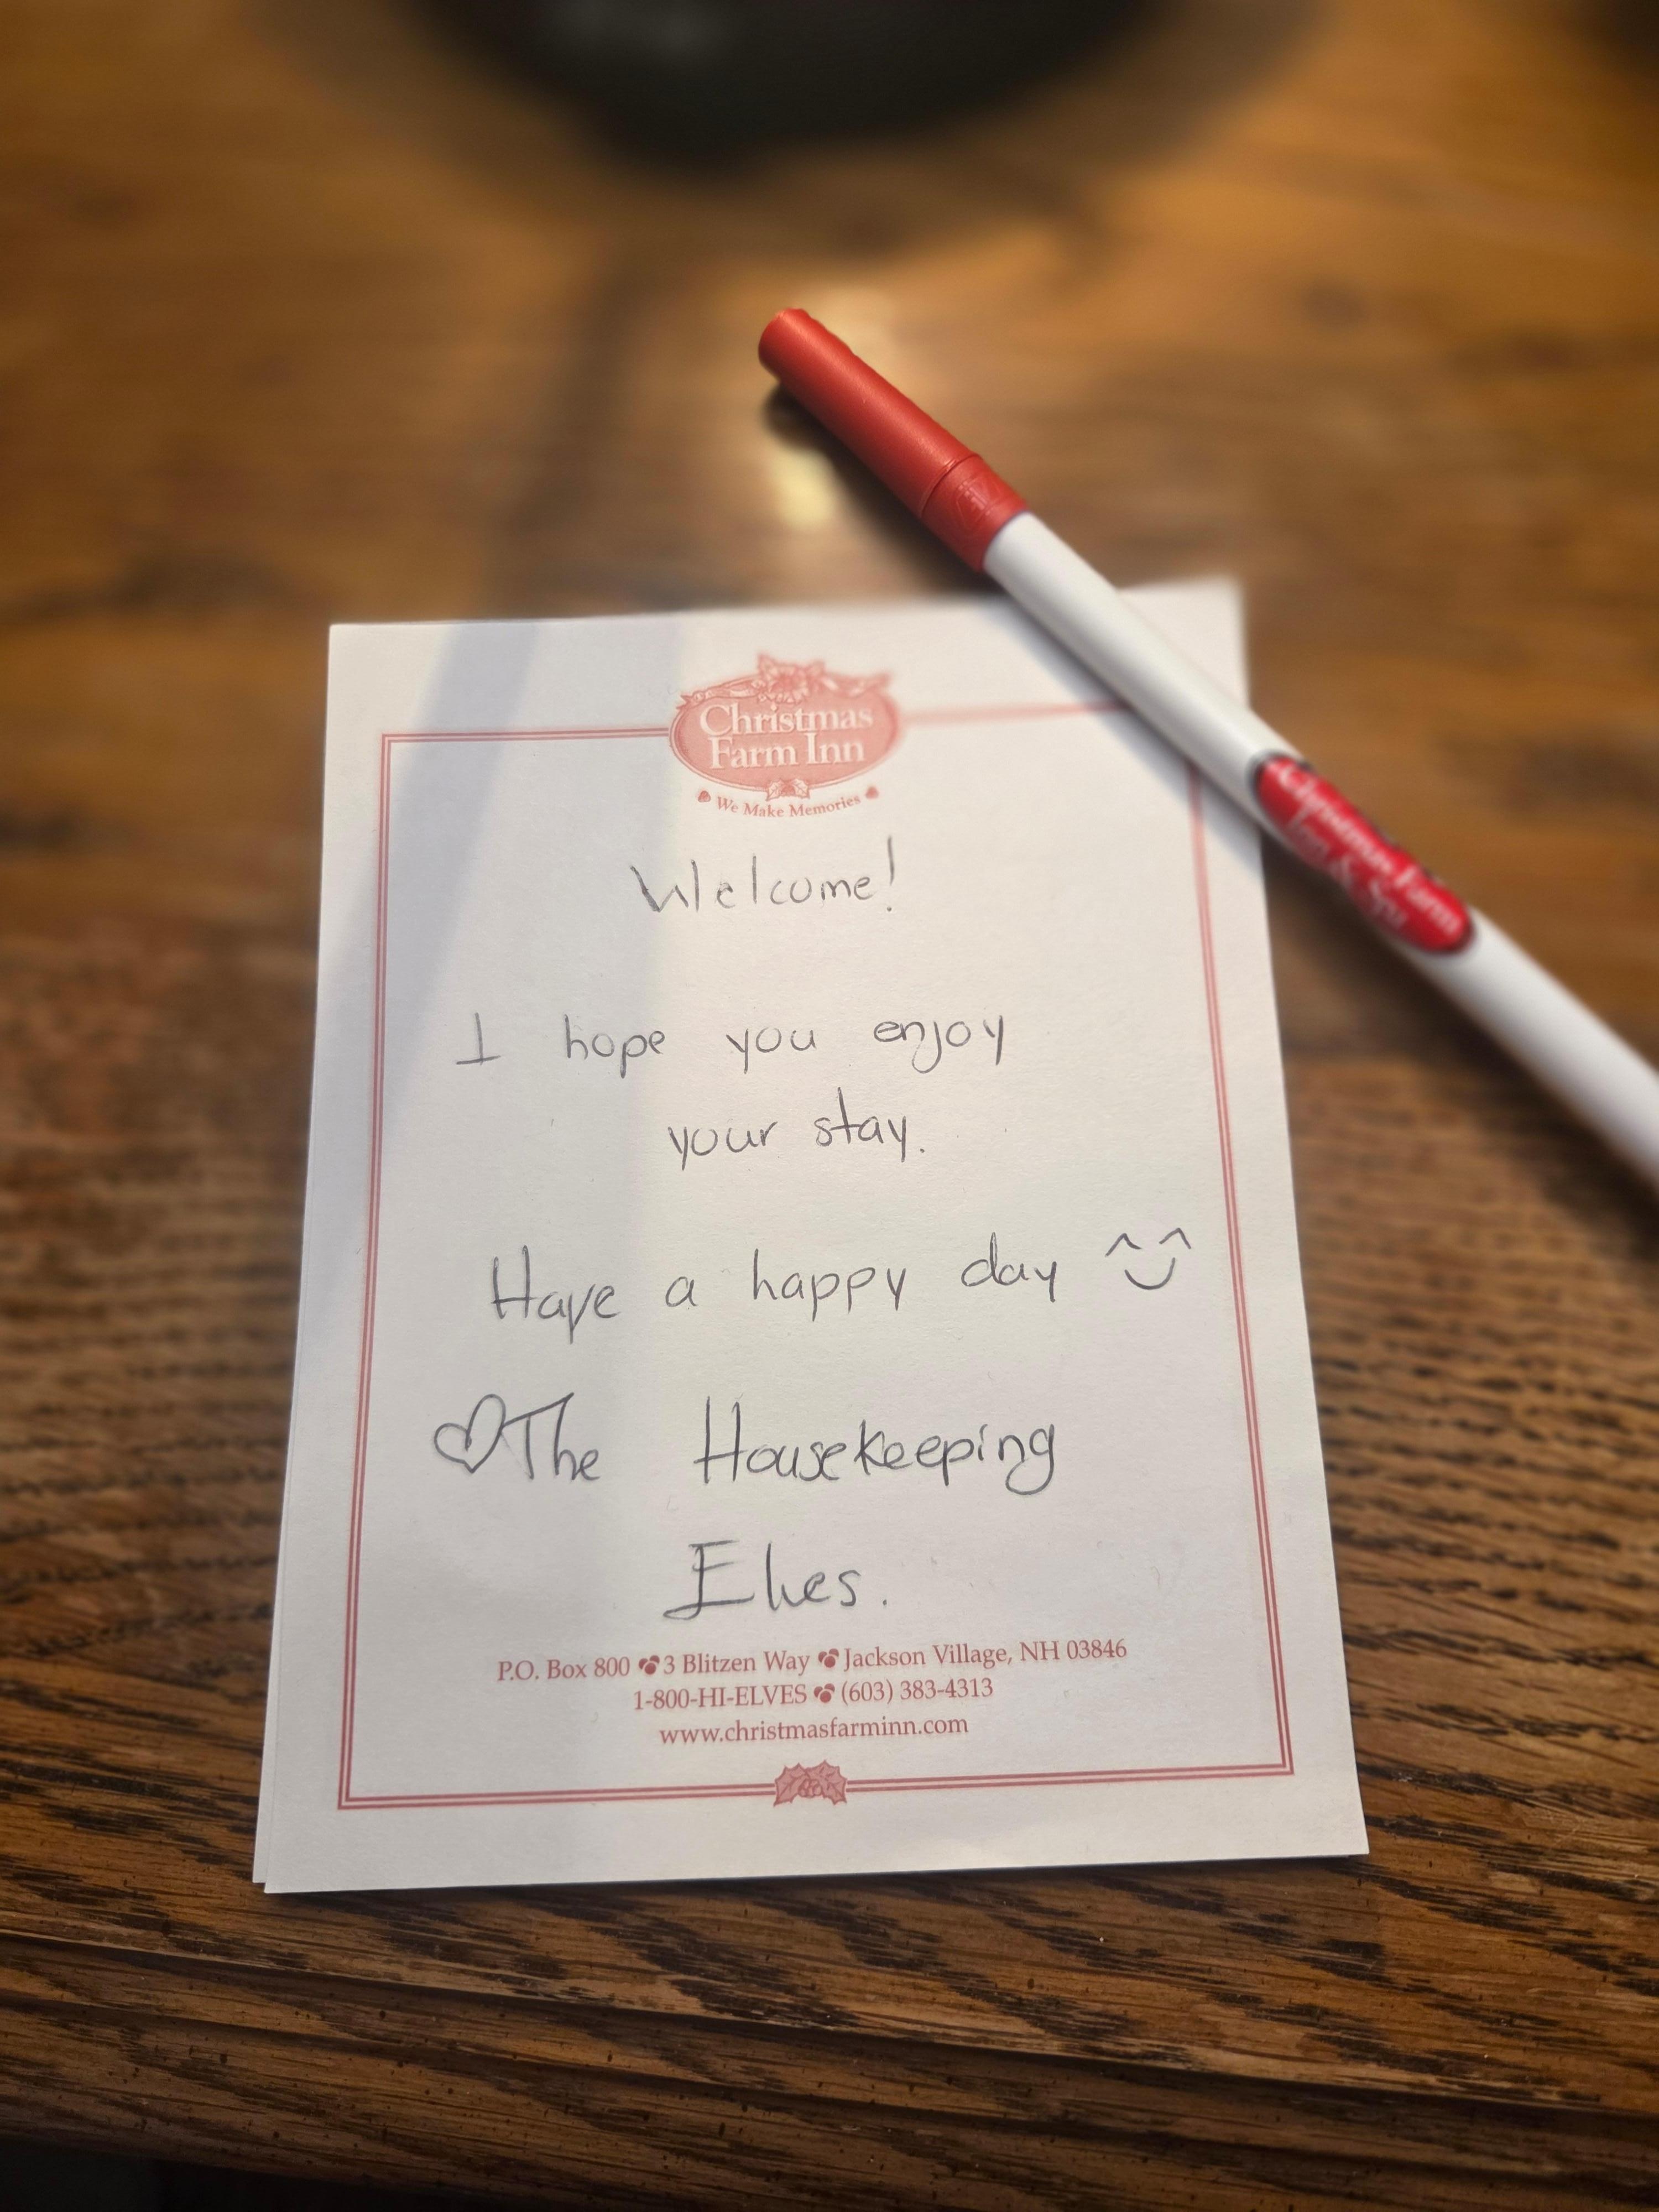 Christmas
Farm Inn
We Make Memories
Welcome!
I hope you enjoy
your stay.
Have a happy day
The Housekeeping
Elves.
P.O. Box 800 3 Blitzen Way Jackson Village, NH 03846
1-800-HI-ELVES (603) 383-4313
www.christmasfarminn.com
Christmas Farm
Inn & Spa